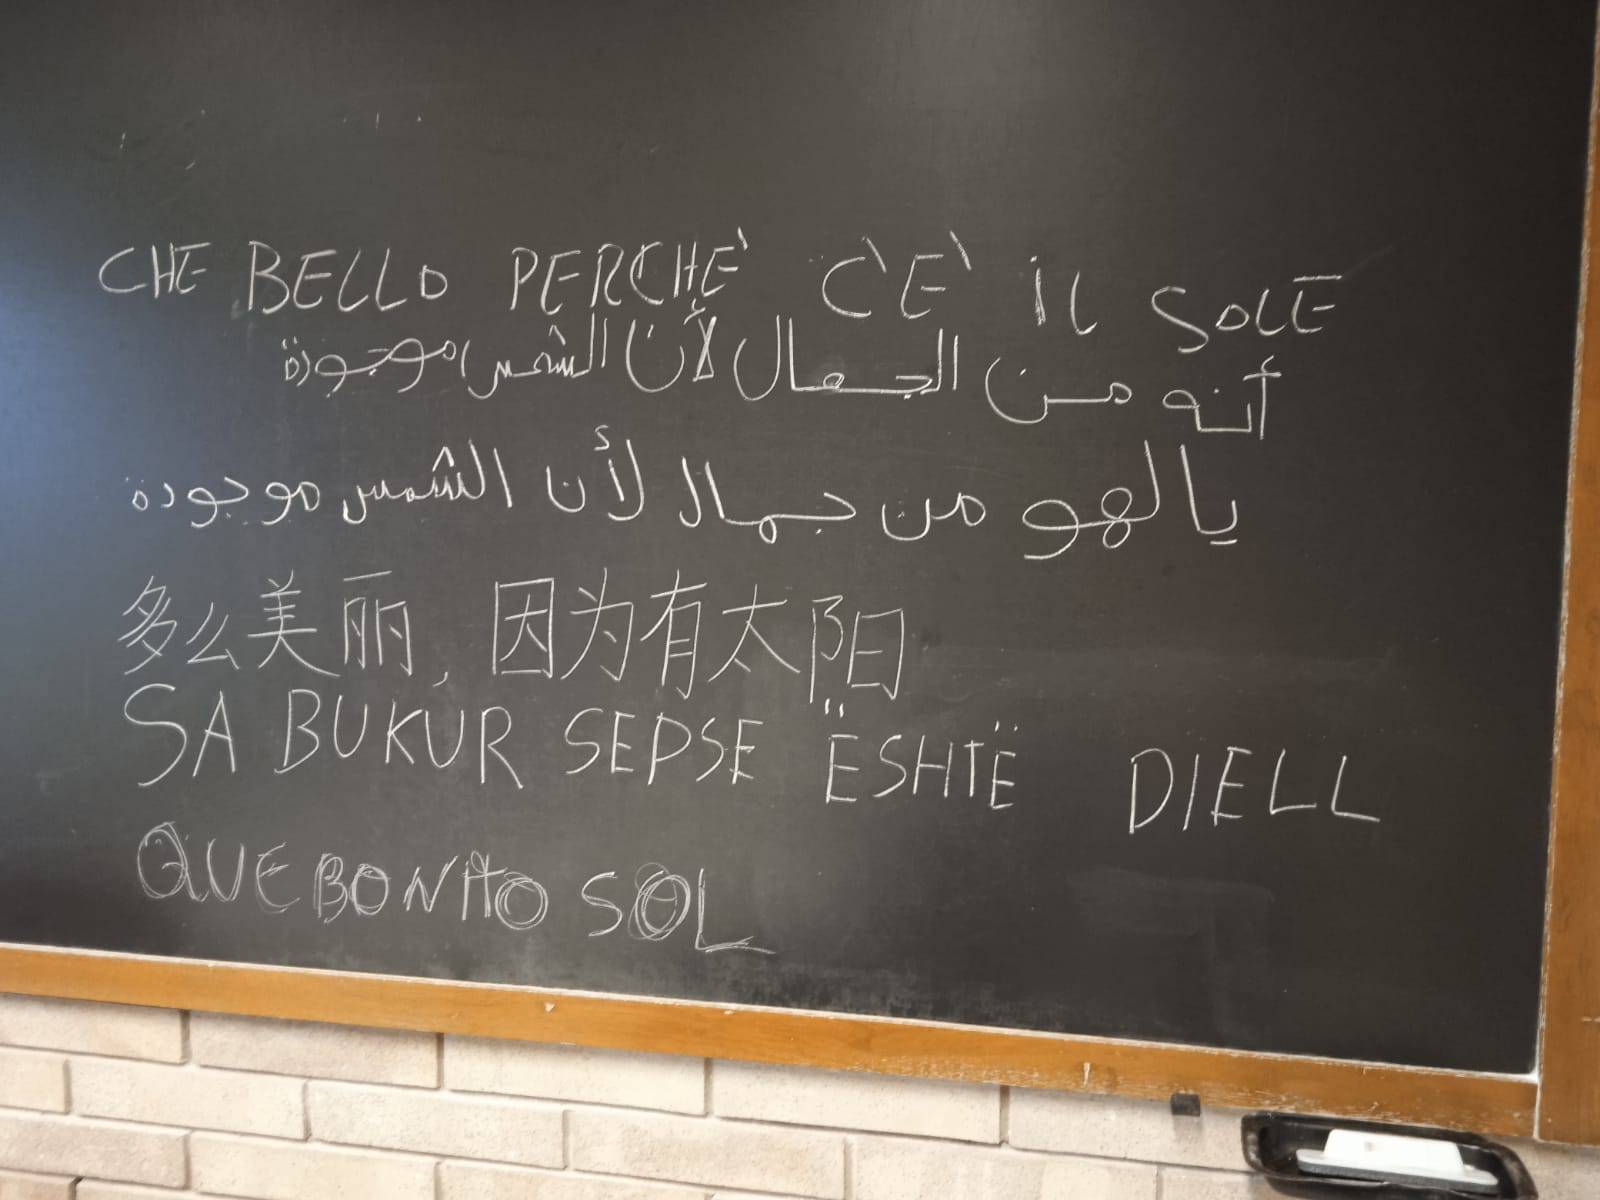 CHE BELLO PERCHE' C'E' IL SOLE
أنه من الجمال لأن الشمس موجودة
يالهو من جمال لأن الشمس موجودة
多么美丽,因为有太阳
SA BUKUR SEPSE ËSHTË DIELL
QUE BONITO SOL